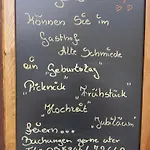 Können Sie im
Gasthof
Alte Schmiede
ein "Geburtstag"
"Picknick" "Frühstück"
"Hochzeit"
"Jubiläum"
feiern...
Buchungen gerne unter